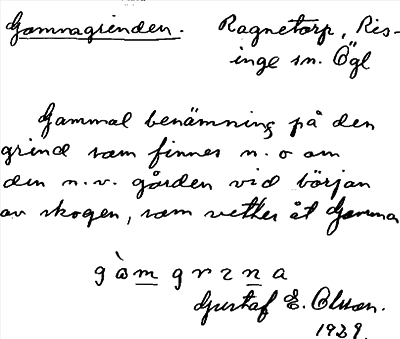 Gamnagrinden. Ragnetorp, Ris-
inge sn. Ögl
Gammal benämning på den
grind som finnes n. o om
den n.v. gården vid början
av skogen, som vetter åt Gamma
Gustaf E. Olsson.
1929.